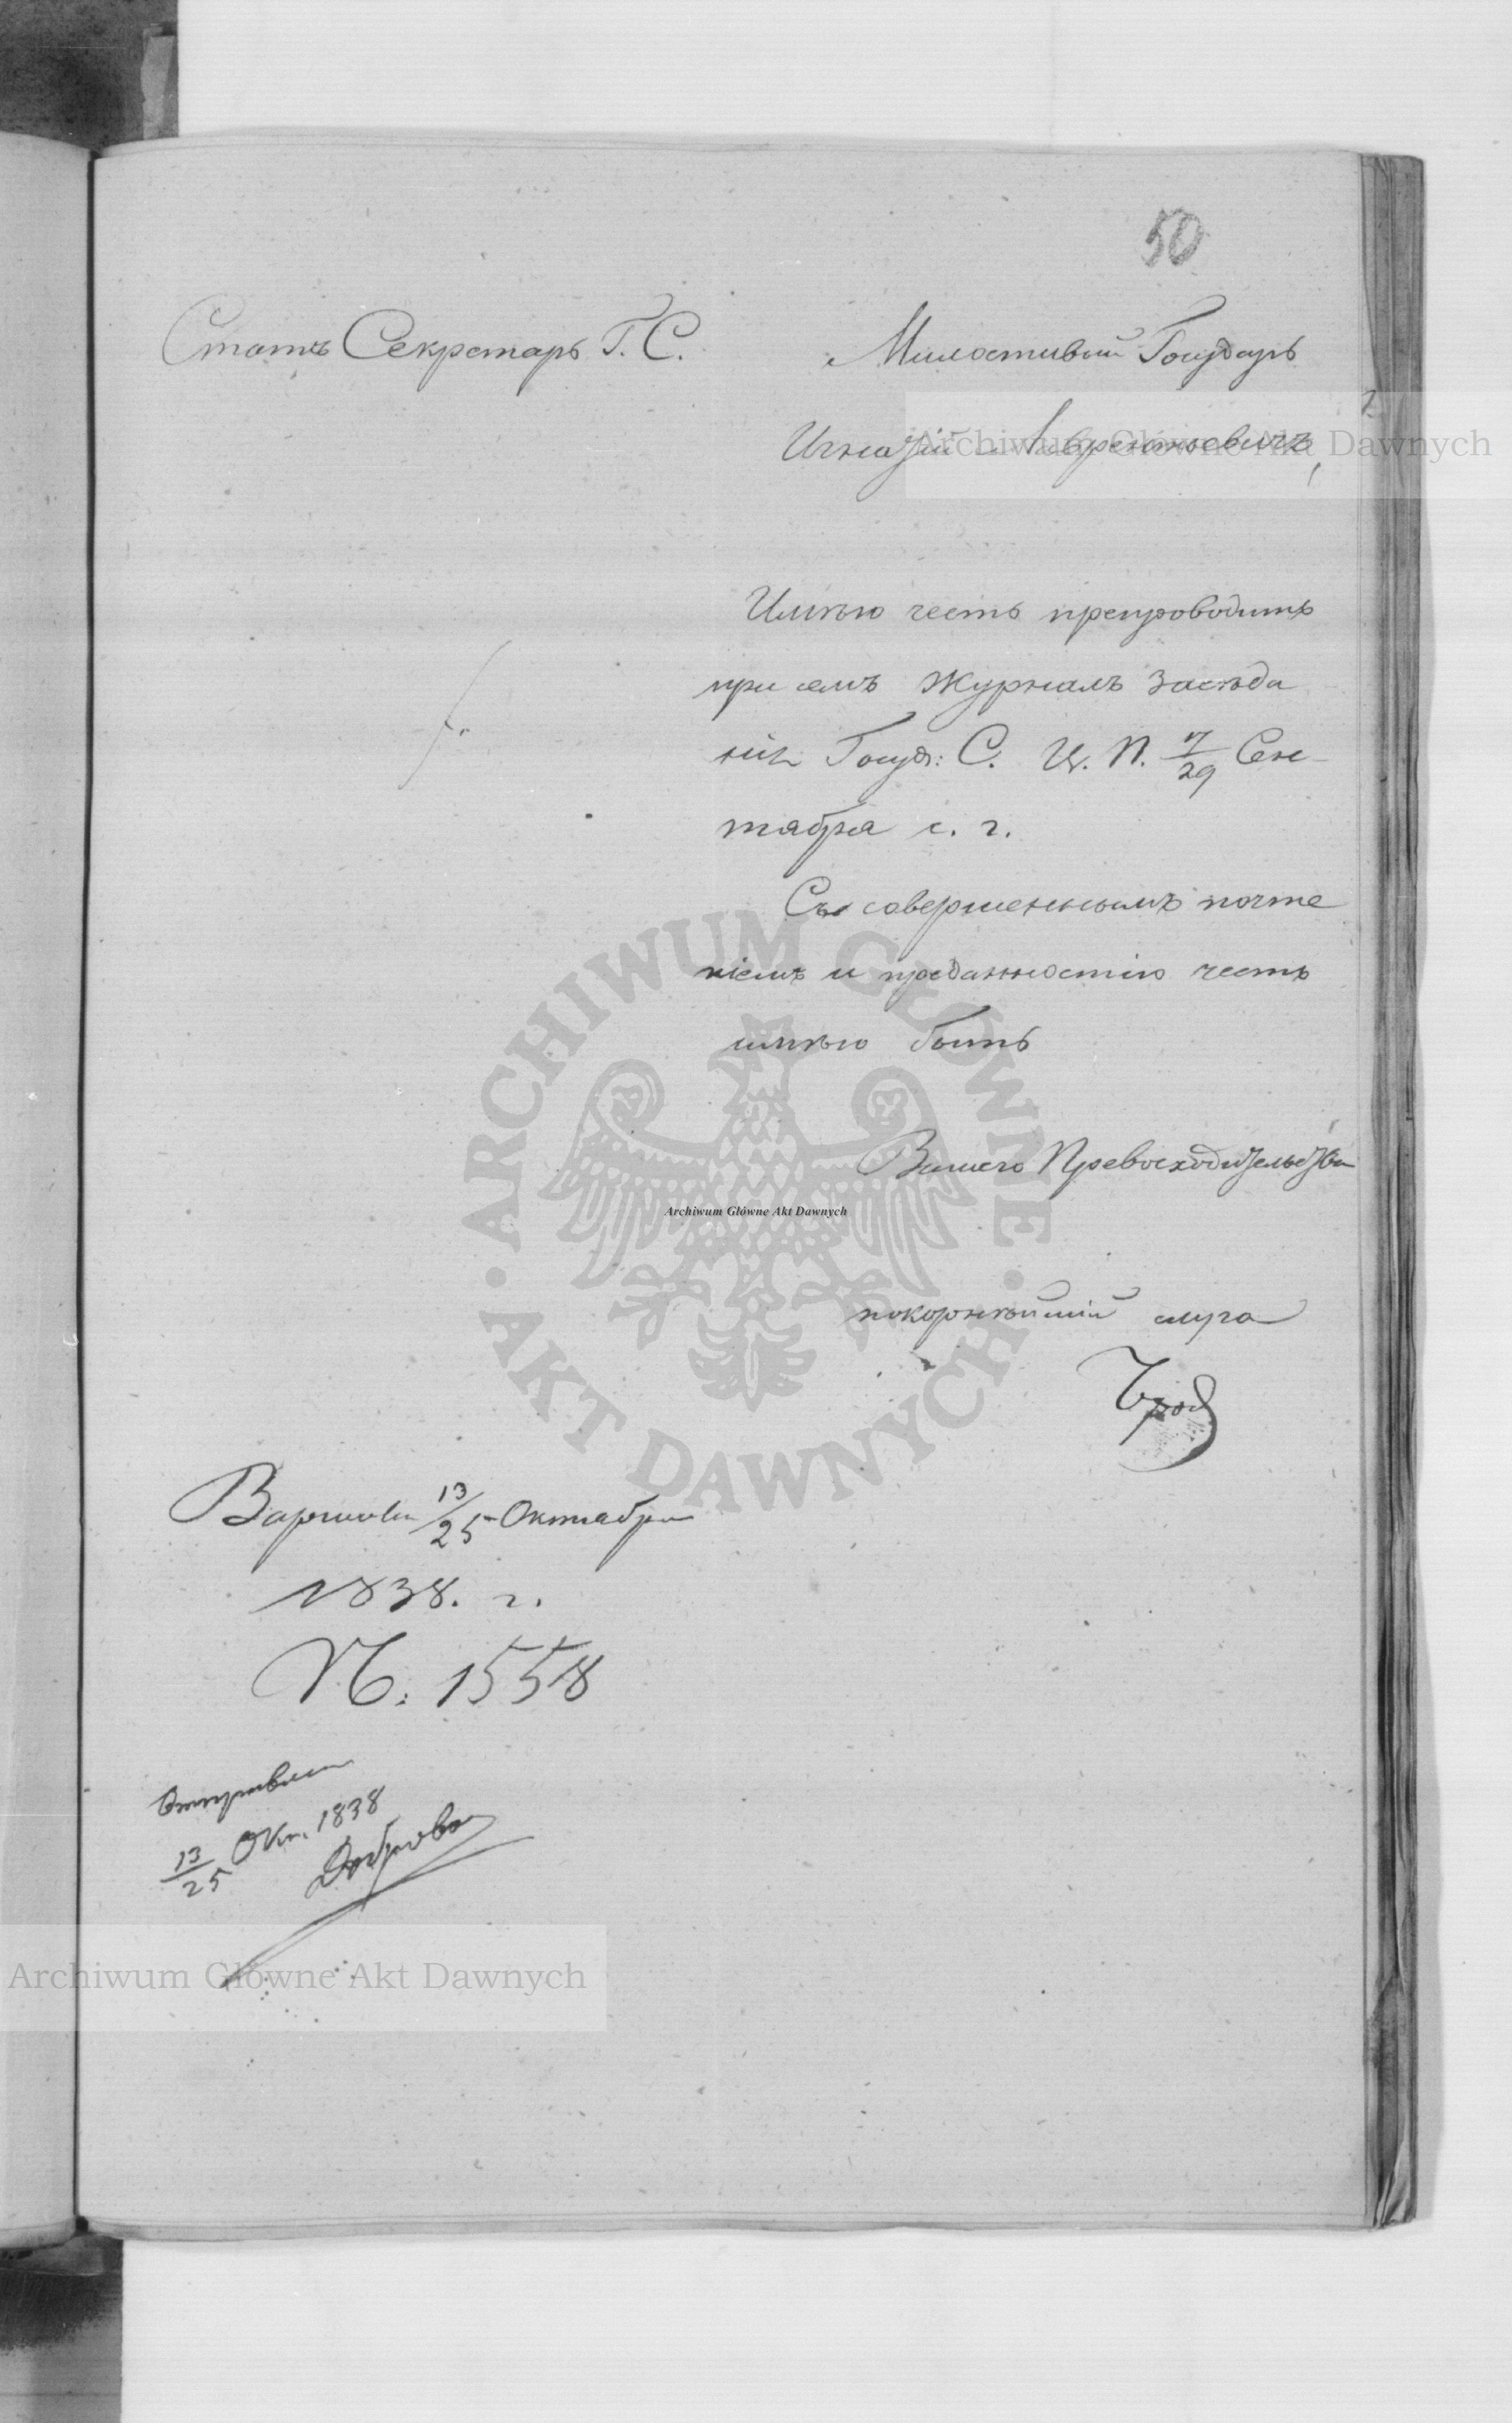 50
Статъ Секретарь Г. С.
Милостивый Государь
Игнатій Лаврентьевичъ,
Имѣю честь препроводить
при семъ Журналъ Засѣда
нія Госуд: С. Ц. П. 7/29 Сен-
тября с. г.
Съ совершеннымъ почте
ніемъ и преданностію честь
имѣю быть
Вашего Превосходительства
покорнѣйшій слуга
Варшава 13/25 Октября
1838. г.
№. 1558
Отправлен
13/25 Окт. 1838
Archiwum Główne Akt Dawnych
ARCHIWUM GŁÓWNE · AKT DAWNYCH ·
Archiwum Główne Akt Dawnych
Archiwum Główne Akt Dawnych